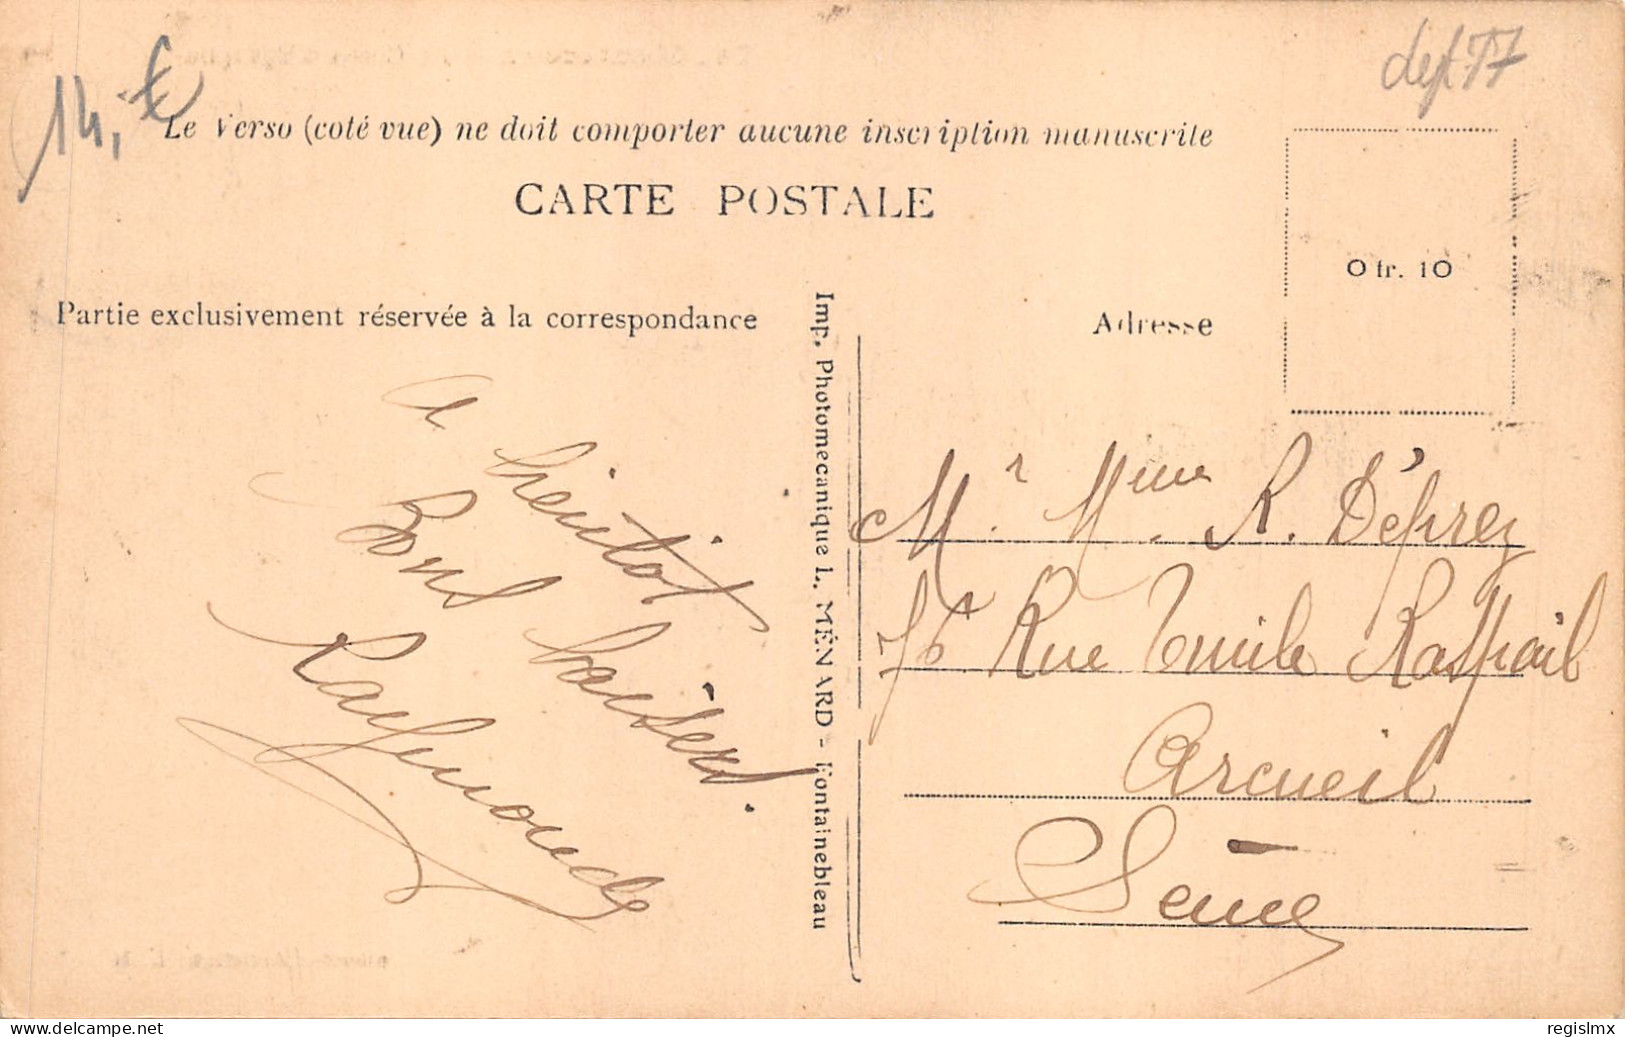 14,€
dept 77
Le Verso (coté vue) ne doit comporter aucune inscription manuscrite
CARTE POSTALE
0 fr. 10
Partie exclusivement réservée à la correspondance
Adresse
a bientot
Bons baisers.
Raymonde
Imp. Photomecanique L. MÉNARD - Fontainebleau
Mr. Mme. R. Déprez
76 Rue Emile Raspail
Arcueil
Seine
www.delcampe.net
regislmx